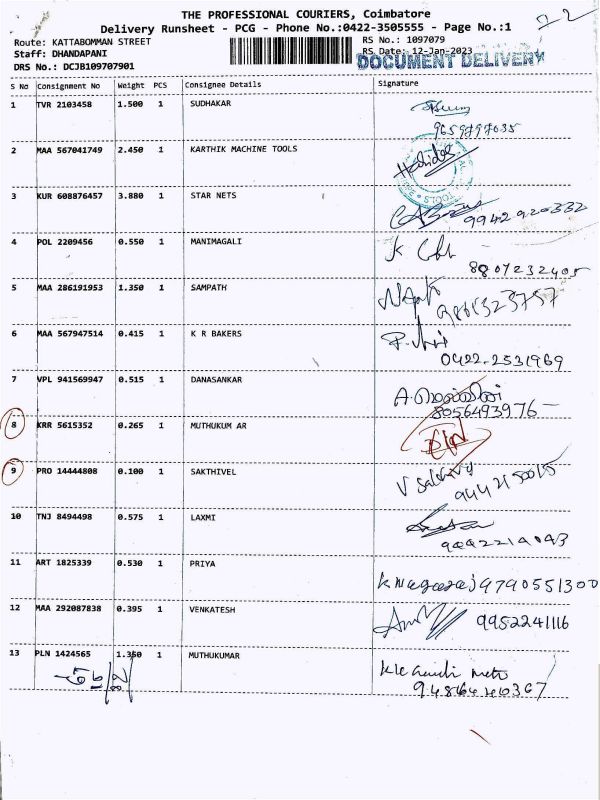 THE PROFESSIONAL COURIERS, Coimbatore
Delivery Runsheet - PCG - Phone No.:0422-3505555 - Page No.:1
Route: KATTABOMMAN STREET
RS No.: 1097079
Staff: DHANDAPANI
RS Date: 12-Jan-2023
DRS No.: DCJB109707901
DOCUMENT DELIVERY
S No Consignment No Weight PCS Consignee Details Signature
1 TVR 2103458 1.500 1 SUDHAKAR
9659797035
2 MAA 567041749 2.450 1 KARTHIK MACHINE TOOLS
3 KUR 608876457 3.880 1 STAR NETS
9942920332
4 POL 2209456 0.550 1 MANIMAGALI
8807232405
5 MAA 286191953 1.350 1 SAMPATH
6 MAA 567947514 0.415 1 K R BAKERS
0422-2531969
7 VPL 941569947 0.515 1 DANASANKAR
8056493976
8 KRR 5615352 0.265 1 MUTHUKUM AR
9 PRO 14444808 0.100 1 SAKTHIVEL
10 TNJ 8494498 0.575 1 LAXMI
11 ART 1825339 0.530 1 PRIYA
K Nagaraj 9790551300
12 MAA 292087838 0.395 1 VENKATESH
9952241116
13 PLN 1424565 1.350 1 MUTHUKUMAR